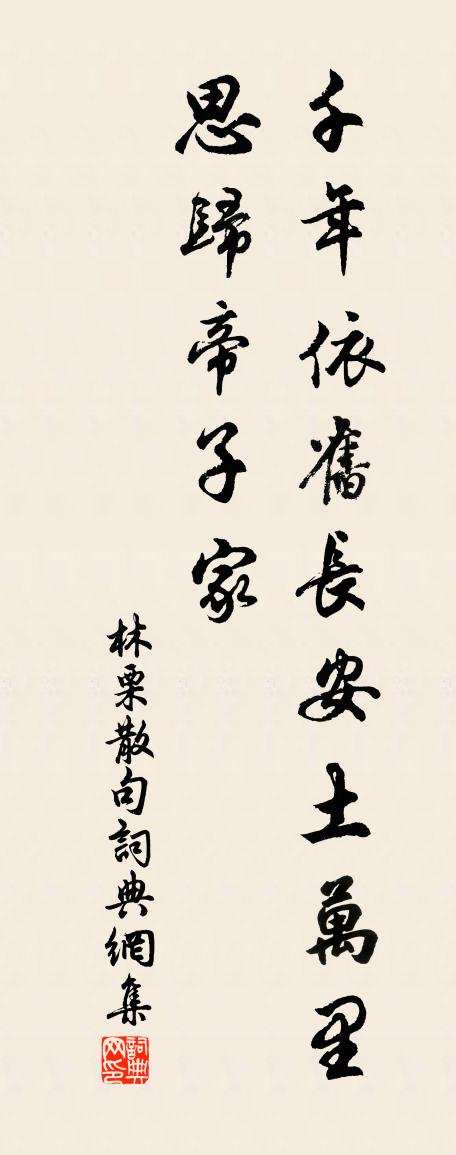 千年依舊長安土萬里
思歸帝子家
林栗散句詞典網集
詞典
网印